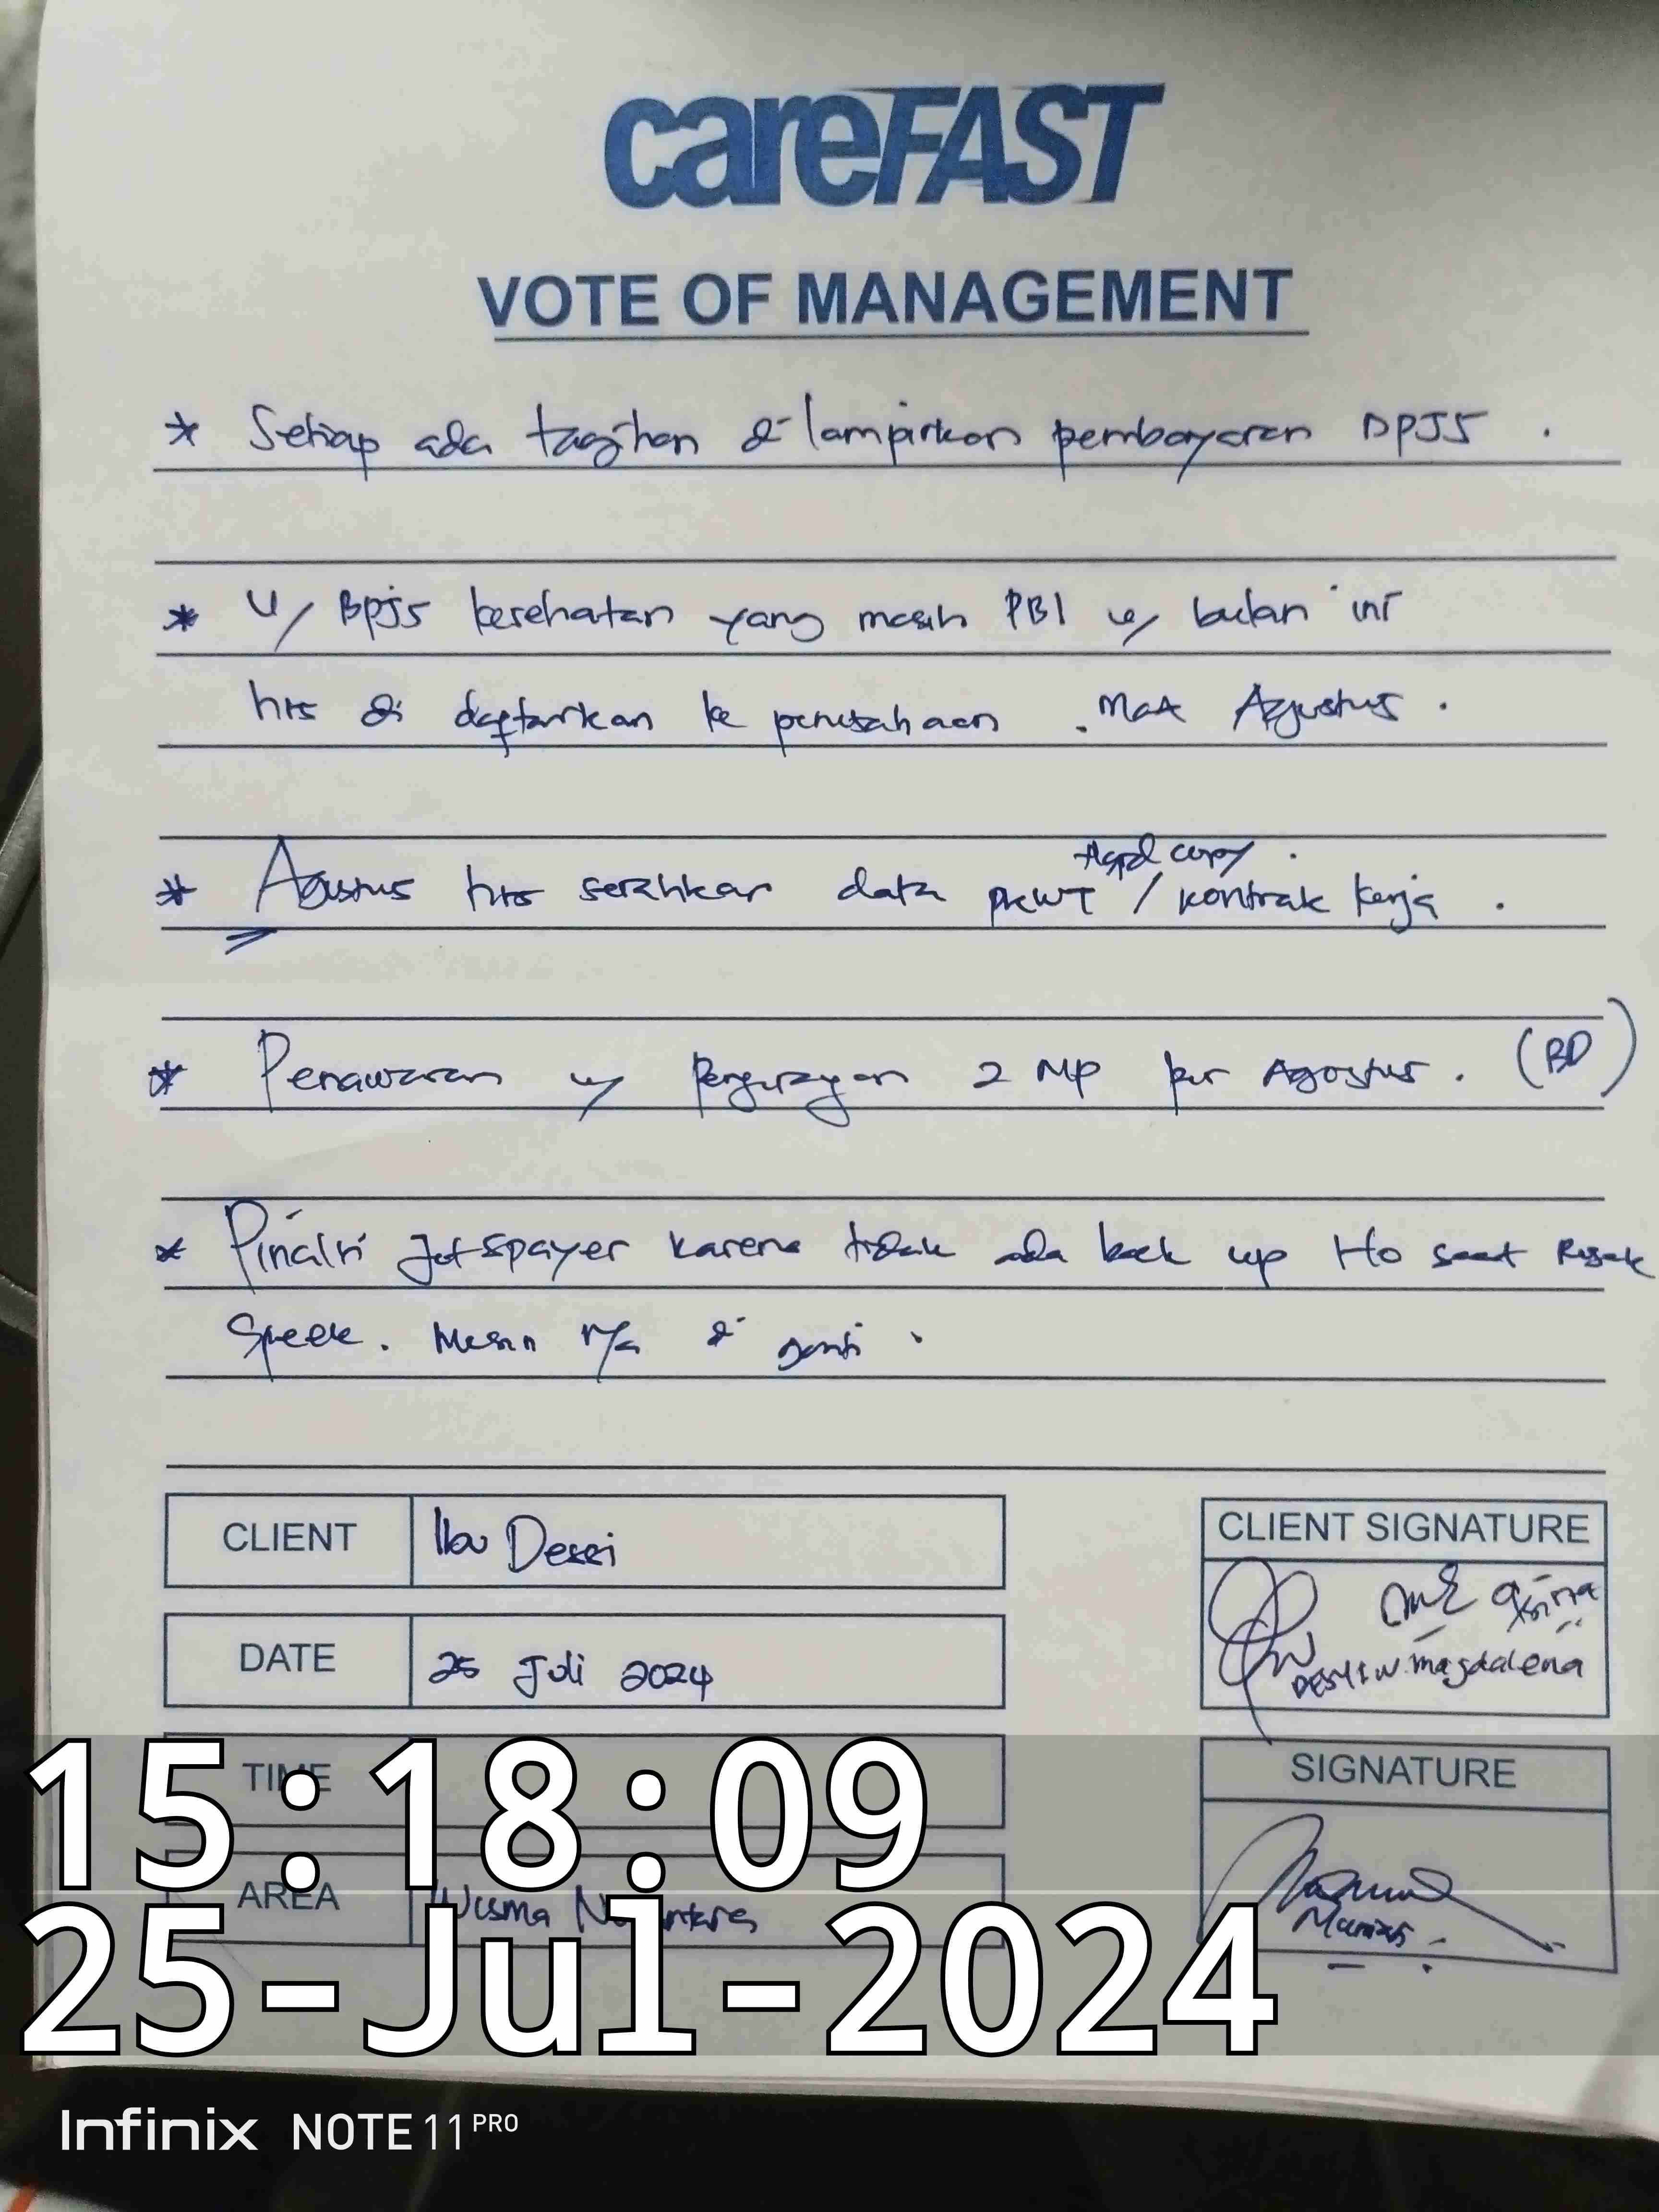 careFAST
VOTE OF MANAGEMENT
* Setiap ada tagihan di lampirkan pembayaran BPJS .
* U/ BPJS kesehatan yang masih PBI u/ bulan ini
hrs di daftarkan ke perusahaan . Max Agustus .
Hard copy .
* Agustus hrs serahkan data PKWT / kontrak kerja .
* Penawaran u/ Pengurangan 2 MP per Agustus . (BD)
* Pinalti Jet spayer karena tidak ada back up HO saat Rusak
. Mesin di ganti .
CLIENT
Ibu Dessi
CLIENT SIGNATURE
magdalena
DATE
25 Juli 2024
TIME
SIGNATURE
AREA
Wisma Nusantara
15:18:09
25-Jul-2024
Infinix NOTE 11 PRO